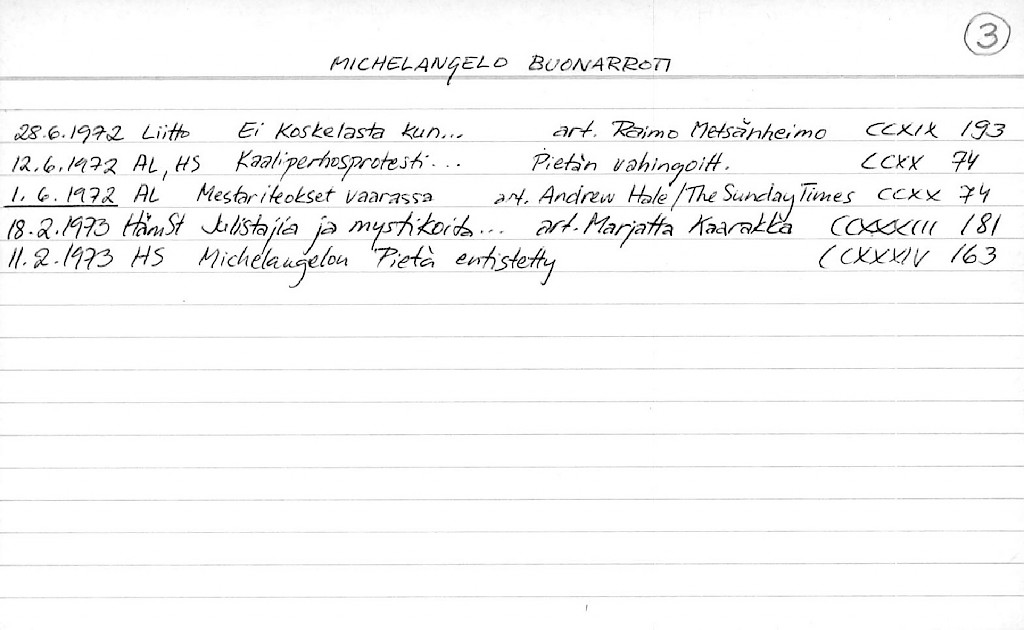 3
MICHELANGELO BUONARROTI
28.6.1972 Liitto Ei Koskelasta kun... art. Raimo Metsänheimo CCXIX 193
12.6.1972 AL, HS Kaaliperhosprotesti... Pietàn vahingoitt. CCXX 74
1.6.1972 AL Mestariteokset vaarassa art. Andrew Hale/The Sunday Times CCXX 74
18.2.1973 HämSt Julistajia ja mystikoita... art. Marjatta Kaarakka CCXXXIII 181
11.2.1973 HS Michelangelon Pietà entistetty CCXXXIV 163